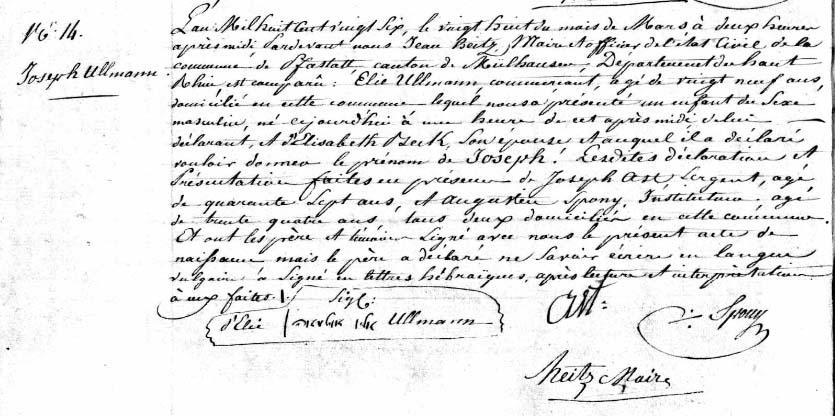 N.° 14.
Joseph Ullmann
L'an Mil huit Cent vingt Six, le vingt huit du mois de Mars à deux heures
après midi Pardevant nous Jean Heitz, Maire et officier de l'état Civil de la
commune de Pfastatt canton de Mulhausen, Département du haut
Rhin, est comparû: Elie Ullmann, commerçant, agé de vingt neuf ans,
domicilié en cette commune lequel nous a présenté un enfant du Sexe
masculin, né cejourdhui à une heure de cet après midi de lui
déclarant, et d'Elisabeth Beck, Son épouse et auquel il a déclaré
vouloir donner le prénom de Joseph! Lesdites déclaration et
Présentation faites en présence de Joseph Ast Sergent, agé
de quarante Sept ans, et Augustin Spony, Instituteur, agé
de trente quatre ans, tous deux domiciliés en cette commune.
Et ont les père et témoins Signé avec nous le présent acte de
naissance mais le père a déclaré ne Savoir écrire en langue
vulgaire a Signé en lettres hébraiques, après lecture et interprétation
à eux faites.
Sig:
d'Elie אלי אולמאן Ullmann
Ast:
Spony
Heitz Maire